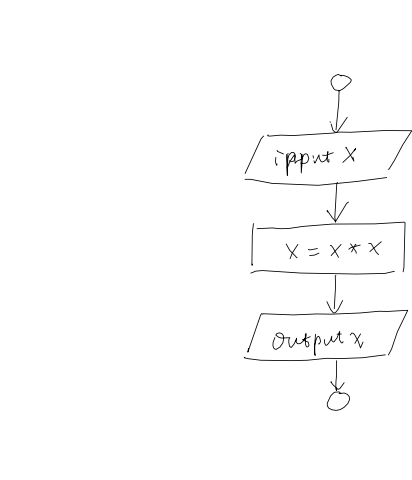 input X
X = X * X
output x